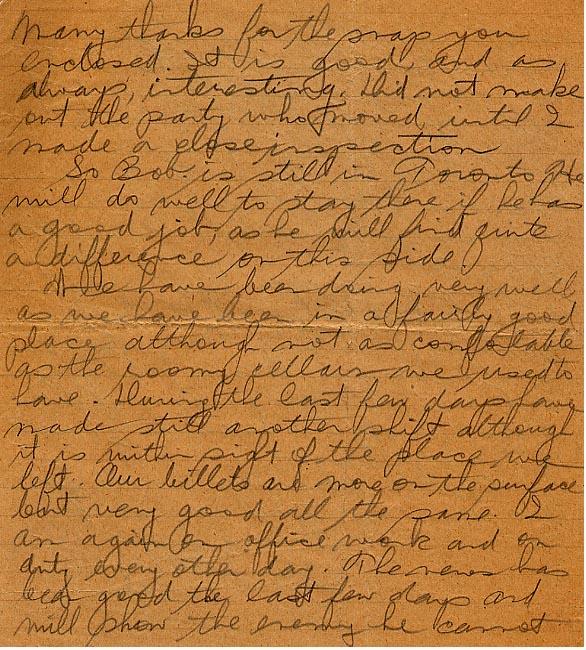 Many thanks for the snap you
enclosed. It is good and as
always, interesting. Did not make
out the party who moved, until I
made a close inspection
So Bob is still in Toronto He
will do well to stay there if he has
a good job, as he will find quite
a difference on this side
We have been doing very well
as we have been in a fairly good
place although not as comfortable
as the roomy cellars we used to
have. During the last few days have
made still another shift although
it is within sight of the place we
left. Our billets are more on the surface
but very good all the same. I
am again on office work and on
duty every other day. The news has
been good the last few days and
will show the enemy he cannot